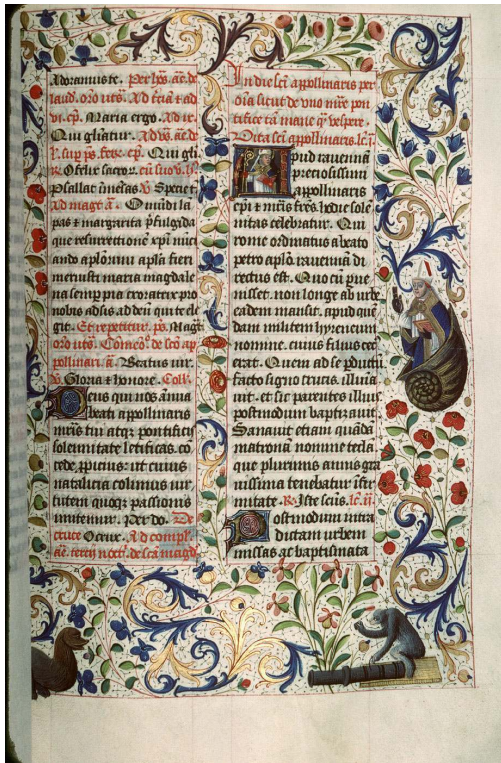 Adoramus te. Per hꝫ añ. de
laud. oro ut sͣ. Ad t̃ciã ⁊ ad
vi. cp̃. Maria ergo. Ad ix.
Qui gliatur. Ad vꝫ. añ. d
l. sup ps̃. ferꝫ. cp̃. Qui gli
Psallat
Ad magt̃ a. O mũdi lã
pas ⁊ margarita p̃fulgida
que resurrectionẽ xp̃i nũci
ando aplõrum apl̃a fieri
meruisti maria magdale
na semp pia exoratrix pro
nobis adsis ad deũ qui te ele
git. Et repetitur. ps̃. Magt̃
oro ut sͣ. Cõmeõ. de scõ ap
pollinari. a. Beatus vir.
v. Gloria ⁊ honore. Coll.
Deus qui nos ãnua
beati appollinaris
mr̃is tui atqꝫ pontificis
solemnitate letificas. cõ
cede ꝓpicius: ut cuius
natalicia colimus vir
tutem quoqꝫ passionis
imitemur. Per do. De
cruce Ad compl.
añ. tercij noct̃. de scã magd
In die scĩ appollinaris per
oĩa sicut de vno mr̃e pon
tifice tã mane qͣ vespere.
Vita scĩ appollinaris. lc̃. i.
Apud rauennã
preciosissimi
apollinaris
ep̃i ⁊ mr̃is fr̃es hodie sole
nitas celebratur. Qui
rome ordinatus a beato
petro aplõ rauennã di
rectus est. Quo cũ pue
nisset. non longe ab urbe
eadem mansit. apud quẽ
dam militem hyreneum
nomine. cuius filius cec
erat. Quem ad se ꝑductũ
facto signo crucis. illumi
uit. et sic parentes illius
postmodum baptizauit.
Sanauit etiam quãdã
matronã nomine tecla
que plurimis annis gra
uissima tenebatur ĩfir
mitate. R. Iste scũs. lc̃. ii.
Postmodum intra
dictam urbem
missas ac baptismata